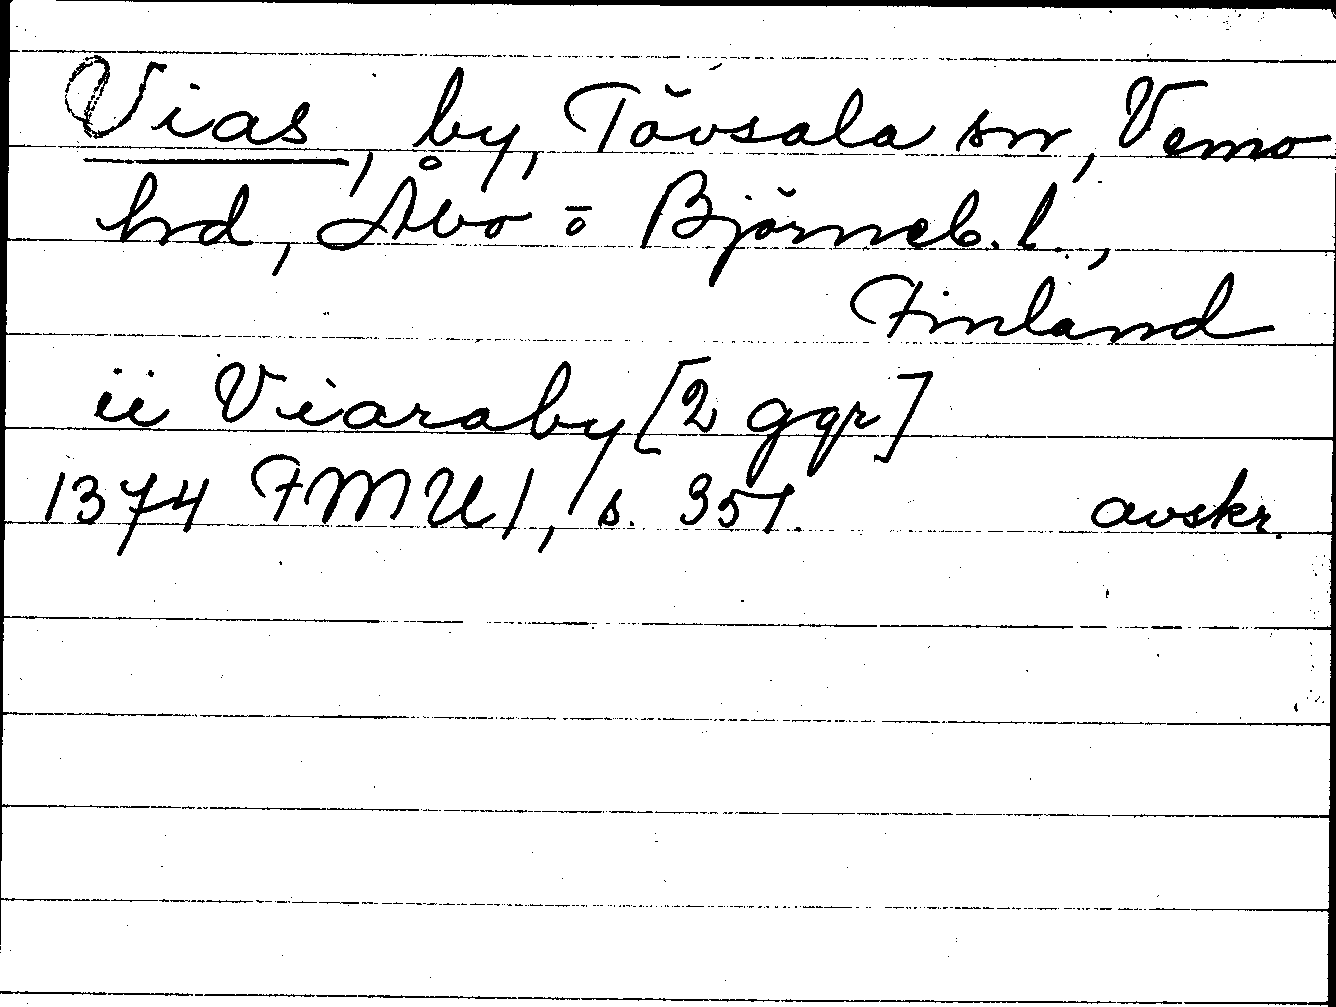 Vias, by, Tövsala sn, Vemo
hd, Åbo o Björneb. l.,
Finland
ii Viaraby [2 ggr]
1374 FMU 1, s. 357. avskr.